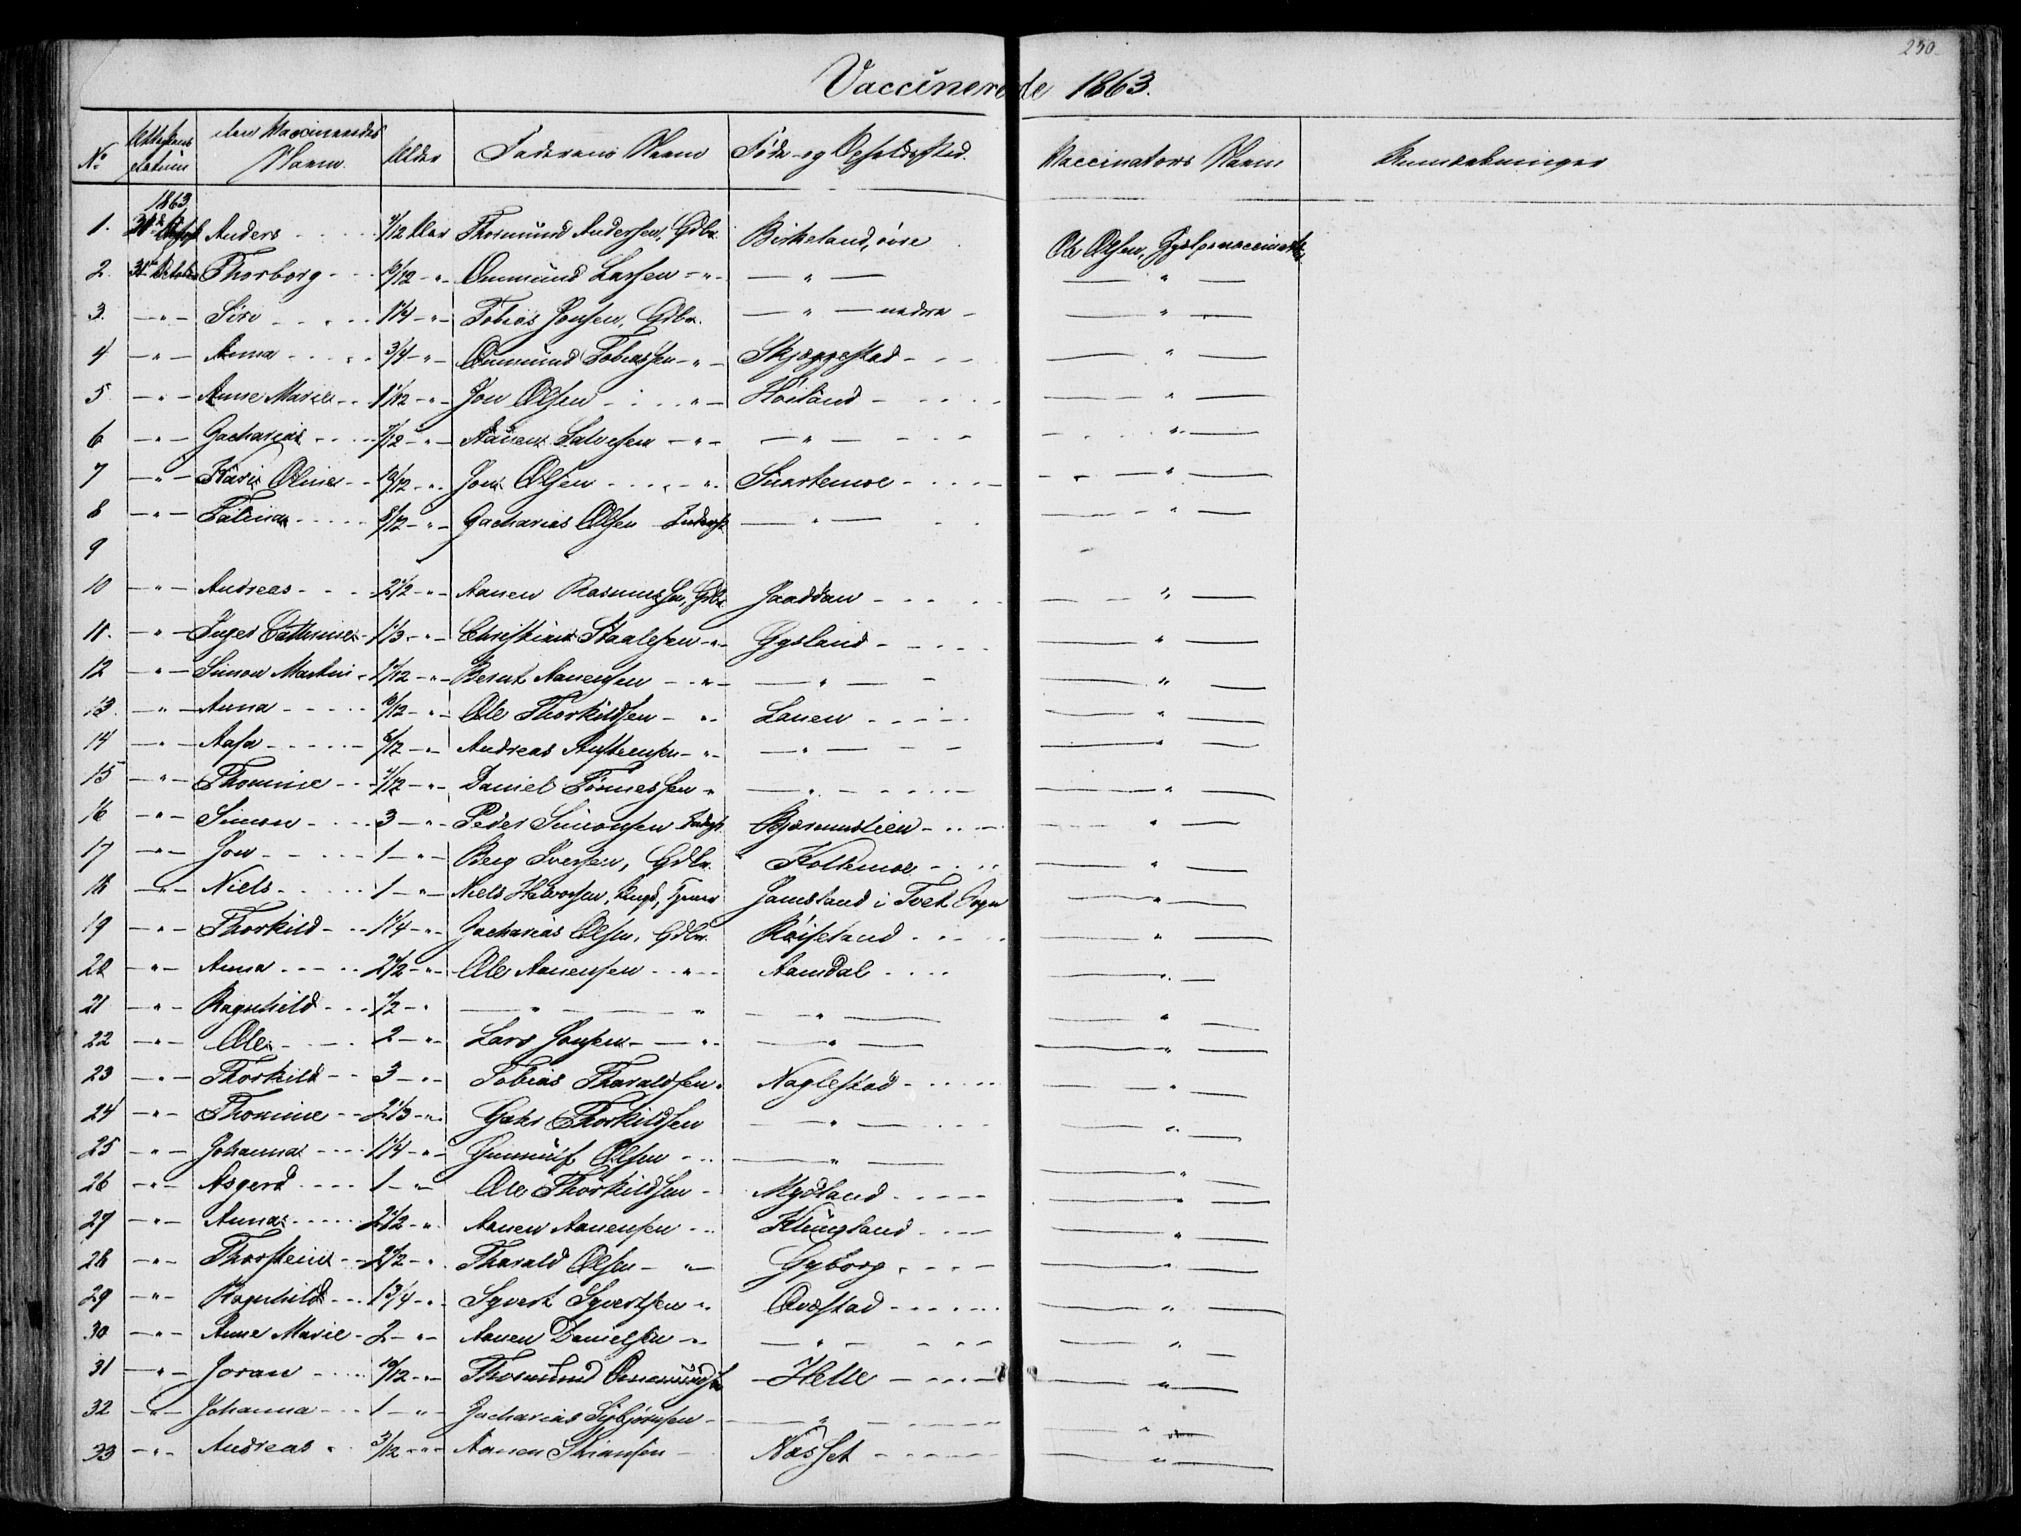 250.
Vaccinerede 1863.
No Attestens Datum den Vaccineredes Navn. Alder Faderens Navn Føde- og Opholdssted. Vaccinators Navn Anmærkninger
1863
1. Anders /12 Aar Thormund Andersen, Gdbr. Birkeland, øvre Ole Olsen, Hjelpevaccinatør
2. 31 October Thorborg 10/12 -"- Ommund Larsen -"- — " — — " —
3. -"- Siri 1 1/4 -"- Tobias Jonsen, Gdbr. — " — nedre — " —
4 -"- Anna 3/4 -"- Ommund Tobiassen -"- Skjeggestad — " —
5 -"- Anne Marie 1 1/12 -"- Jon Olsen " Høiland — " —
6 -"- Zacharias 7/12 -"- Aanen Salvesen -"- — " — — " —
7 -"- Kari Oline 10/12 -"- Jon Olsen " Snartemoe — " —
8 -"- Taline 8/12 -"- Zacharias Olsen Inderst — " — — " —
9
10 -"- Andreas 2 1/2 -"- Aanen Rasmussen, Gdbr Jaaddan — " —
11. -"- Inger Cathrine 1 1/3 -"- Christian Staalesen -"- Gysland — " —
12 -"- Simon Martin 1 1/12 -"- Bernt Aanensen -"- — " — — " —
13. -"- Anna 10/12 -"- Ole Thorkildsen - " Lauen — " —
14 -"- Aasa 8/12 -"- Andreas Austensen -"- — " — — " —
15 -"- Thomine /12 -"- Daniel Tønnessen " — " — — " —
16 -"- Simon 3 -"- Peder Simonsen Inderst Gjermundlien — " —
17 -"- Jon 1 -"- Berg Iversen, Gdbr. " Koltemoe — " —
18 -"- Niels 1 -"- Niels Halvorsen, Ungk, Jamsland i Tvet Sogn — " —
19 -"- Thorkild 1 1/4 -"- Zacharias Olsen, Gdbr. Røiseland — " —
20 -"- Anna 2 1/2 -"- Ole Aanensen " Aamdal — " —
21 -"- Ragnhild 1/2 -" — " — " — " — — " —
22 -"- Ole 2 -"- Lars Jonsen — " — " — — " —
23 -"- Thorkild 3 -"- Tobias Tharaldsen " Naglestad — " —
24 -"- Thomine 2 1/3 -"- Gabr Thorkildsen — " — — " —
25 -"- Johanna 1 1/4 -"- Gunnuf Olsen — " — — " —
26 -"- Asgerd 1 -"- Ole Thorkildsen Mydland — " —
27 -"- Anna 2 1/2 -"- Aanen Aanensen Klungland — " —
28 -"- Thorstein 2 1/2 -" Tharald Olsen - " — Gyborg — " —
29 -"- Ragnhild 1 3/4 -"- Syvert Syvertsen " Qvæstad — " —
30 -"- Anne Marie 2 -"- Aanen Danielsen -"- — " — — " —
31 -"- Joran 10/12 -"- Thormund Ommundsen Helle — " —
32 -"- Johanna 1 -"- Zacharias Sybjørnsen — " — — " —
33 -"- Andreas 3/12 -"- Aanen Stiansen Nasset — " —